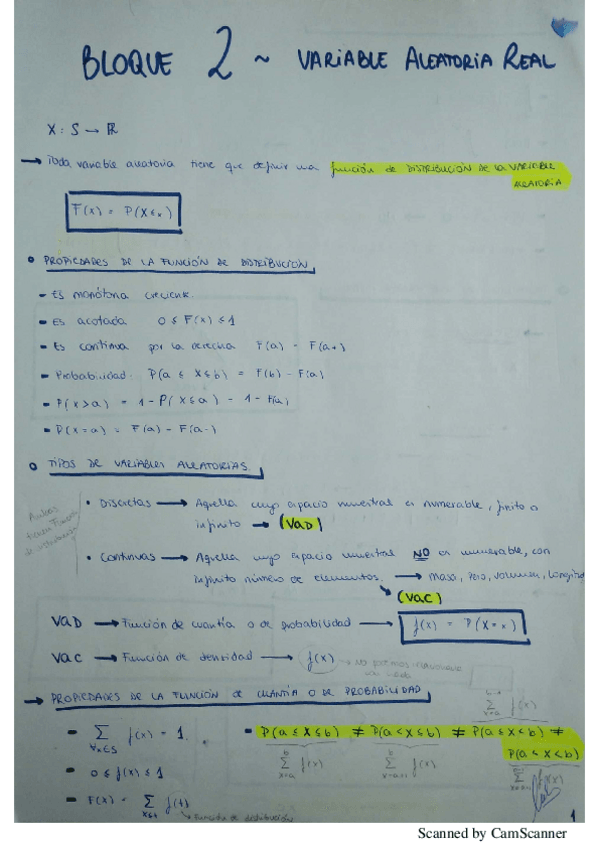 BLOQUE 2 ~ VARIABLE ALEATORIA REAL
X : S → ℝ
→ Toda variable aleatoria tiene que definir una función de DISTRIBUCIÓN DE LA VARIABLE
ALEATORIA
F(x) = P(X ≤ x)
PROPIEDADES DE LA FUNCIÓN DE DISTRIBUCIÓN
- Es monótona creciente.
- Es acotada 0 ≤ F(x) ≤ 1
- Es continua por la derecha F(a) = F(a+)
- Probabilidad. P(a ≤ X ≤ b) = F(b) - F(a)
- P(X > a) = 1 - P(X ≤ a) = 1 - F(a)
- P(X = a) = F(a) - F(a-)
TIPOS DE VARIABLES ALEATORIAS
Ambas
tienen función
de distribución
• Discretas → Aquella cuyo espacio muestral es numerable, finito o
infinito → (VaD)
• Continuas → Aquella cuyo espacio muestral NO es numerable, con
infinito número de elementos. → masa, peso, volumen, longitud
(VaC)
VaD → Función de cuantía o de probabilidad → f(x) = P(X = x)
VaC → Función de densidad → f(x)
→ PROPIEDADES DE LA FUNCIÓN DE CUANTÍA O DE PROBABILIDAD
- ∑ f(x) = 1.
∀x∈S
- 0 ≤ f(x) ≤ 1
- F(x) = ∑ f(t)
→ Función de distribución
- P(a ≤ X ≤ b) ≠ P(a < X ≤ b) ≠ P(a ≤ X < b) ≠
P(a < X < b)
b ∑ x=a f(x)
b ∑ x=a+1 f(x)
∑ x=a f(x)
∑ f(x)
1
Scanned by CamScanner